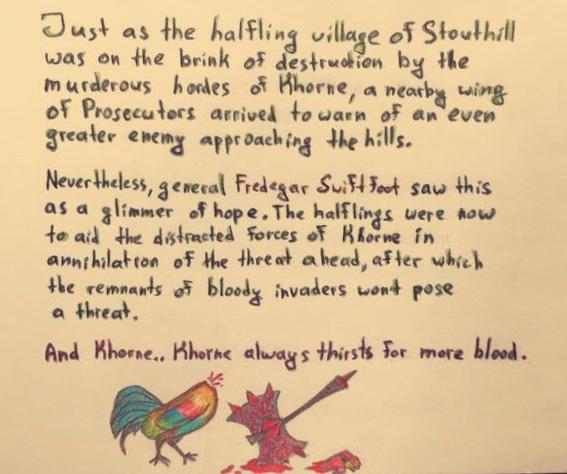 Just as the halfling village of Stouthill
was on the brink of destruction by the
murderous hordes of Khorne, a nearby wing
of Prosecutors arrived to warn of an even
greater enemy approaching the hills.
Nevertheless, general Fredegar Swiftfoot saw this
as a glimmer of hope. The halflings were now
to aid the distracted forces of Khorne in
annihilation of the threat ahead, after which
the remnants of bloody invaders wont pose
a threat.
And Khorne.. Khorne always thirsts for more blood.